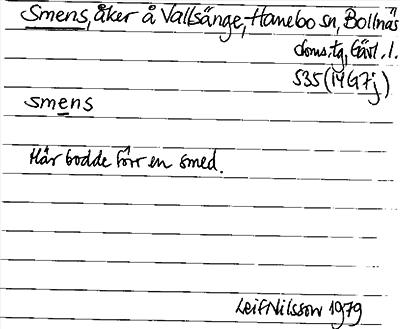 Smens, åker å Vallsänge, Hanebo sn, Bollnäs
doms.tg, Gävl. l.
S35 (14G7j)
smens
Här bodde förr en smed.
Leif Nilsson 1979